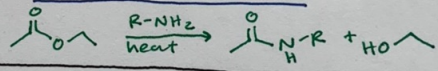 O O R-NH2 heat O O N-R H + HO